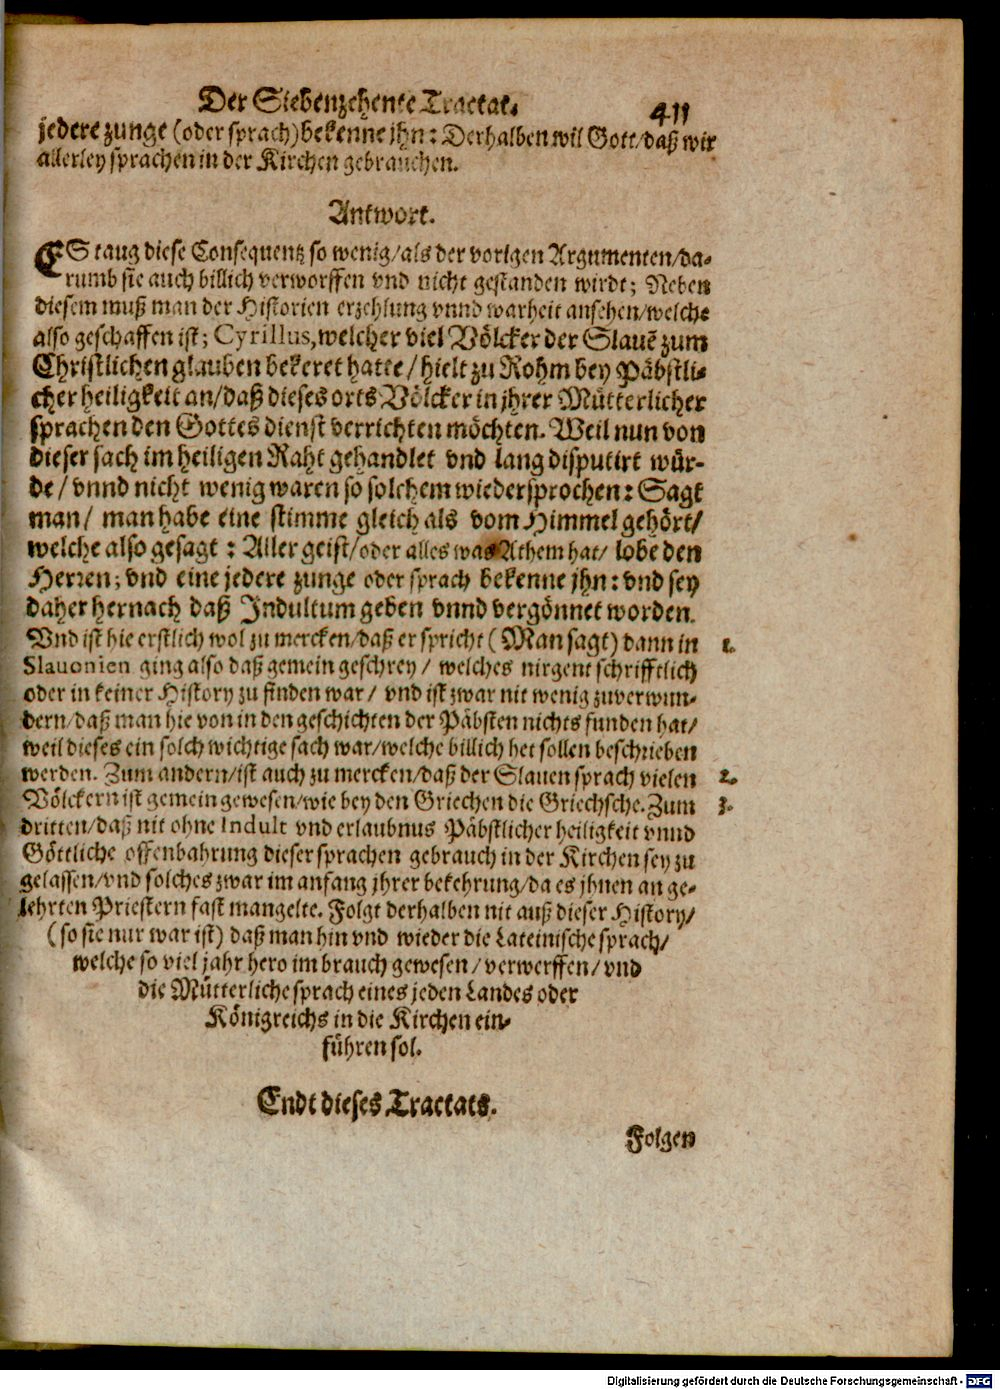 Der Siebenzehente Tractat. 411
jedere zunge (oder sprach) bekenne jhn: Derhalben wil Gott/daß wir
allerley sprachen in der Kirchen gebrauchen.
Antwort.
ES taug diese Consequentz so wenig/als der vorigen Argumenten/da-
rumb sie auch billich verworffen vnd nicht gestanden wirdt; Neben
diesem muß man der Historien erzehlung vnnd warheit ansehen/welche
also geschaffen ist; Cyrillus, welcher viel Völcker der Slauē zum
Christlichen glauben bekeret hatte/hielt zu Rohm bey Päbstli-
cher heiligkeit an/daß dieses orts Völcker in jhrer Mütterlicher
sprachen den Gottes dienst verrichten möchten. Weil nun von
dieser sach im heiligen Raht gehandlet vnd lang disputirt wür-
de/vnnd nicht wenig waren so solchem wiedersprochen: Sagt
man/ man habe eine stimme gleich als vom Himmel gehört/
welche also gesagt: Aller geist/oder alles was Athem hat/ lobe den
Herren; vnd eine jedere zunge oder sprach bekenne jhn: vnd sey
daher hernach daß Indultum geben vnnd vergönnet worden.
Vnd ist hie erstlich wol zu mercken/daß er spricht (Man sagt) dann in 1.
Slauonien ging also daß gemein geschrey/ welches nirgent schrifftlich
oder in keiner History zu finden war/ vnd ist zwar nit wenig zuverwun-
dern/daß man hie von in den geschichten der Päbsten nichts funden hat/
weil dieses ein solch wichtige sach war/welche billich het sollen beschrieben
werden. Zum andern/ist auch zu mercken/daß der Slauen sprach vielen 2.
Völckern ist gemein gewesen/wie bey den Griechen die Griechsche. Zum 3.
dritten/daß nit ohne Indult vnd erlaubnus Päbstlicher heiligkeit vnnd
Göttliche offenbahrung dieser sprachen gebrauch in der Kirchen sey zu
gelassen/vnd solches zwar im anfang jhrer bekehrung/da es jhnen an ge-
lehrten Priestern fast mangelte. Folgt derhalben nit auß dieser History/
(so sie nur war ist) daß man hin vnd wieder die Lateinische sprach/
welche so viel jahr hero im brauch gewesen/verwerffen/vnd
die Mütterliche sprach eines jeden Landes oder
Königreichs in die Kirchen ein-
führen sol.
Endt dieses Tractats.
Folgen
Digitalisierung gefördert durch die Deutsche Forschungsgemeinschaft - DFG